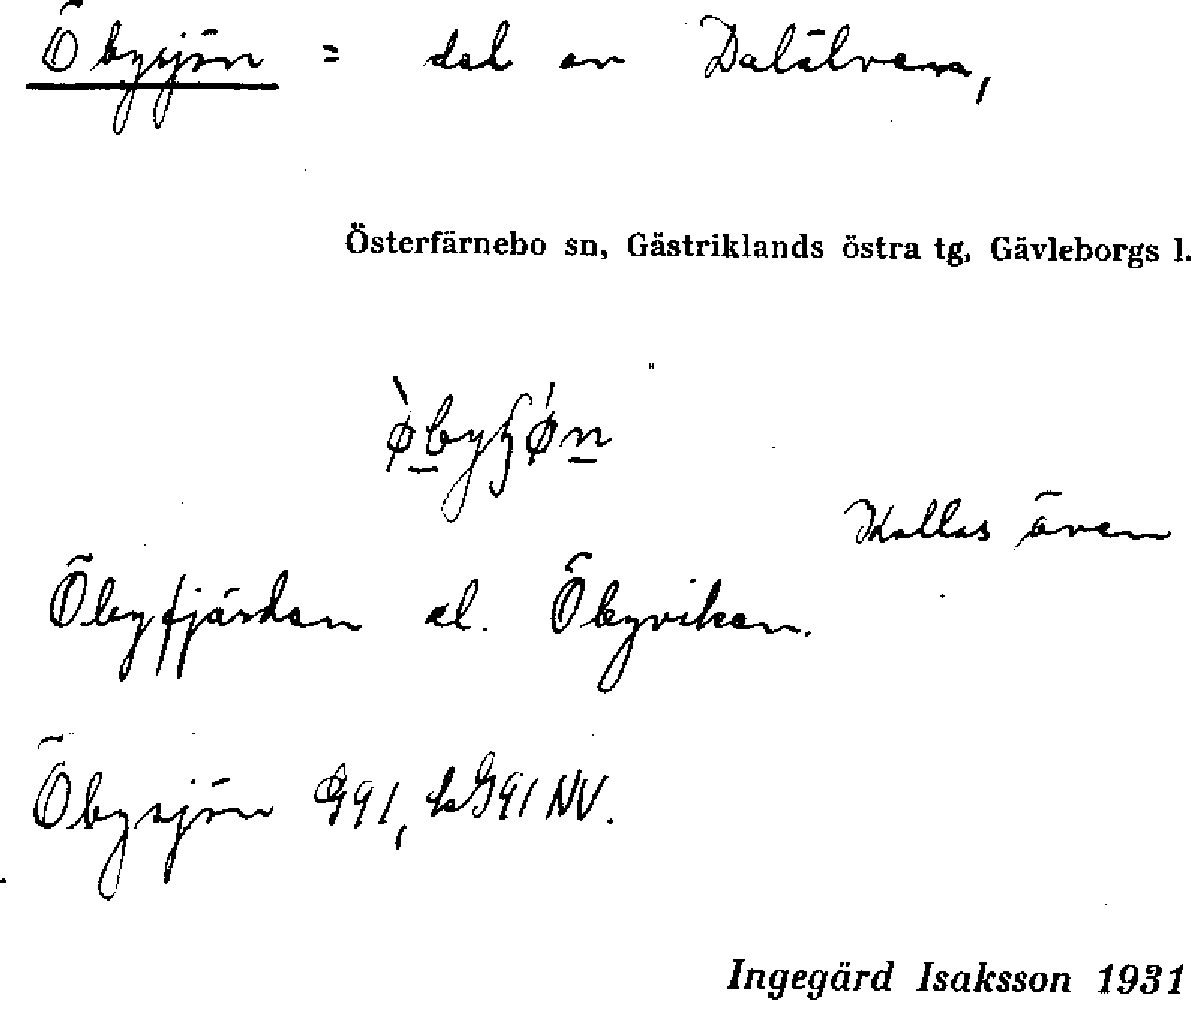 Öbysjön = del av Dalälven,
Österfärnebo sn, Gästriklands östra tg, Gävleborgs l.
Kallas även
Öbyfjärden el. Öbyviken.
Öbysjön G91, k G91 NV.
Ingegärd Isaksson 1931